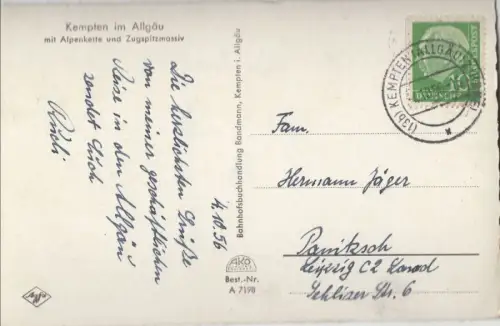 Kempten im Allgäu
mit Alpenkette und Zugspitzmassiv
4.10.56
Die herzlichsten Grüße
von meiner geschäftlichen
Reise in den Allgäu
sendet Euch
Rudi
Bahnhofsbuchhandlung Bandmann, Kempten i. Allgäu
Best.-Nr.
A 7198
(13b) KEMPTEN (ALLGÄU)
10
Fam.
Hermann Jäger
Panitzsch
Leipzig C2 Land
Str. 6